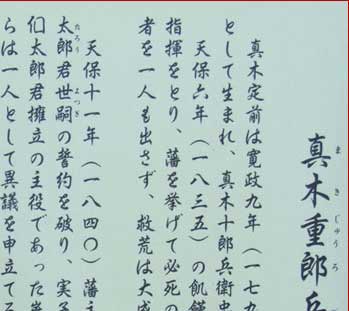 まきじゅうろ
真木重郎兵
真木定前は寛政九年（一七九
として生まれ、真木十郎兵衛忠
天保六年（一八三五）の飢饉
指揮をとり、藩を挙げて必死の
者を一人も出さず、救荒は大成
天保十一年（一八四〇）藩主
たろう よつぎ
太郎君世嗣の誓約を破り、実子
太郎君擁立の主役であった
らは一人として異議を申立て